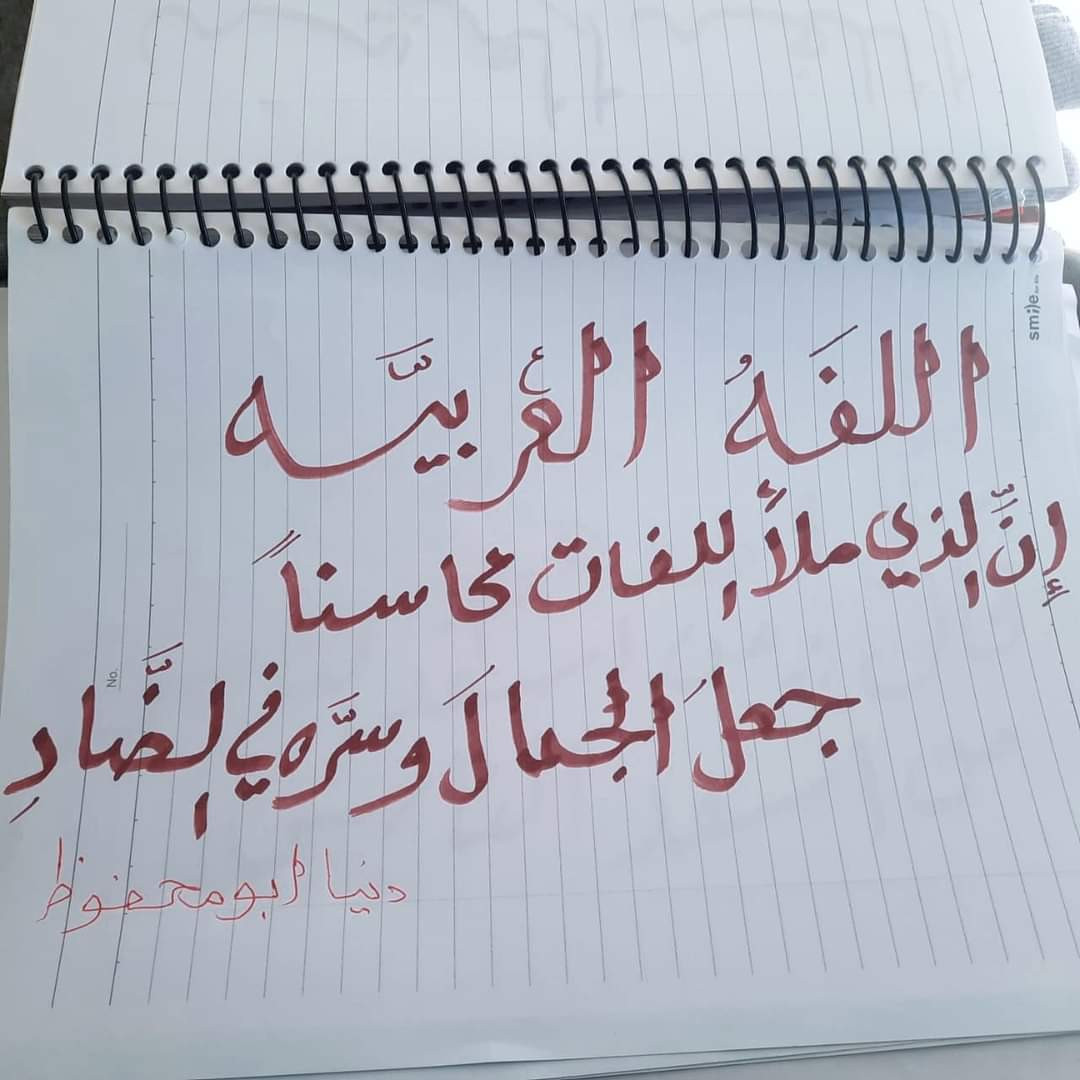 اللغَهُ العربيَّه
إنَّ الذي ملأَ اللغات محاسناً
جعلَ الجمالَ وسرَّه في الضَّادِ
دنيا ابو محفوظ
smile
No.